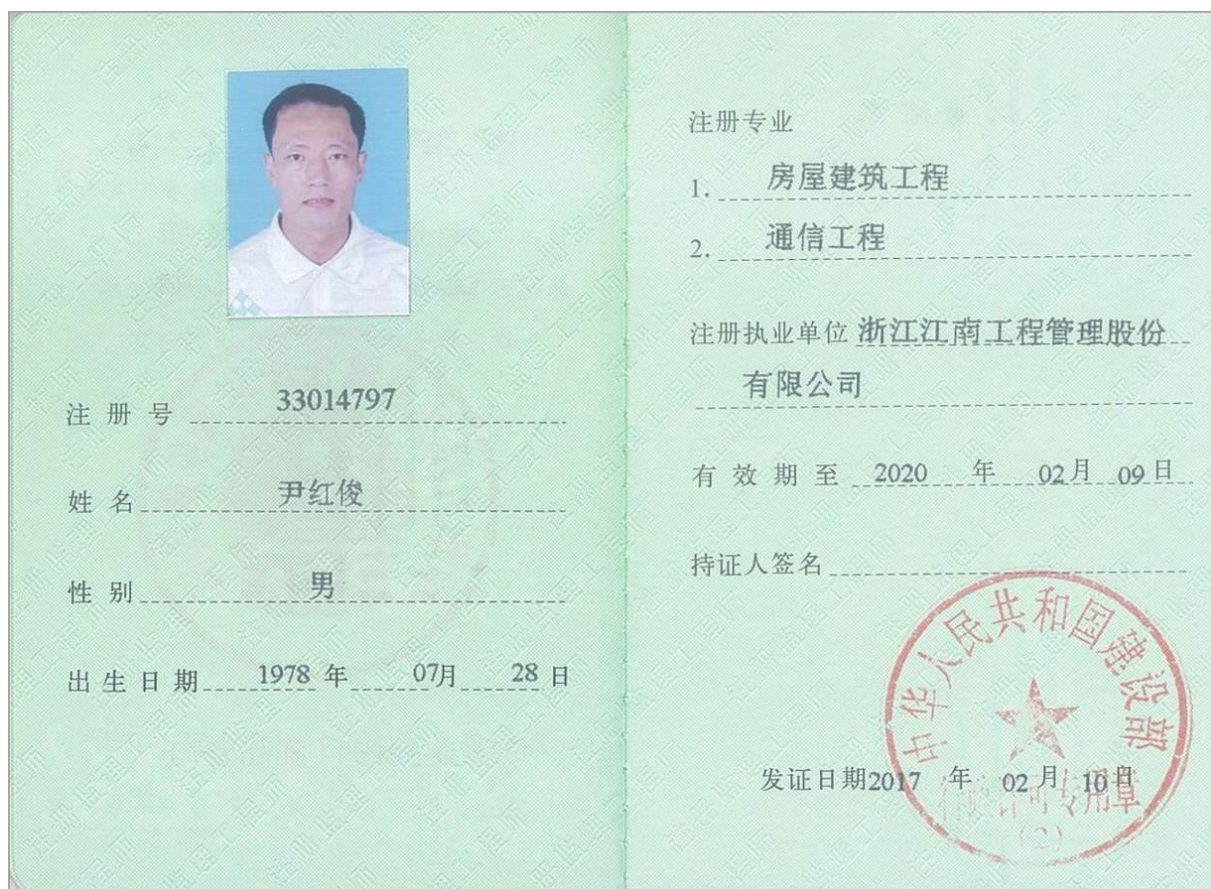 注册号 33014797
姓名 尹红俊
性别 男
出生日期 1978 年 07月 28 日
注册专业
1. 房屋建筑工程
2. 通信工程
注册执业单位 浙江江南工程管理股份
有限公司
有效期至 2020 年 02月 09日
持证人签名
中华人民共和国建设部
发证日期2017 年 02月 10日
行政许可专用章
(2)